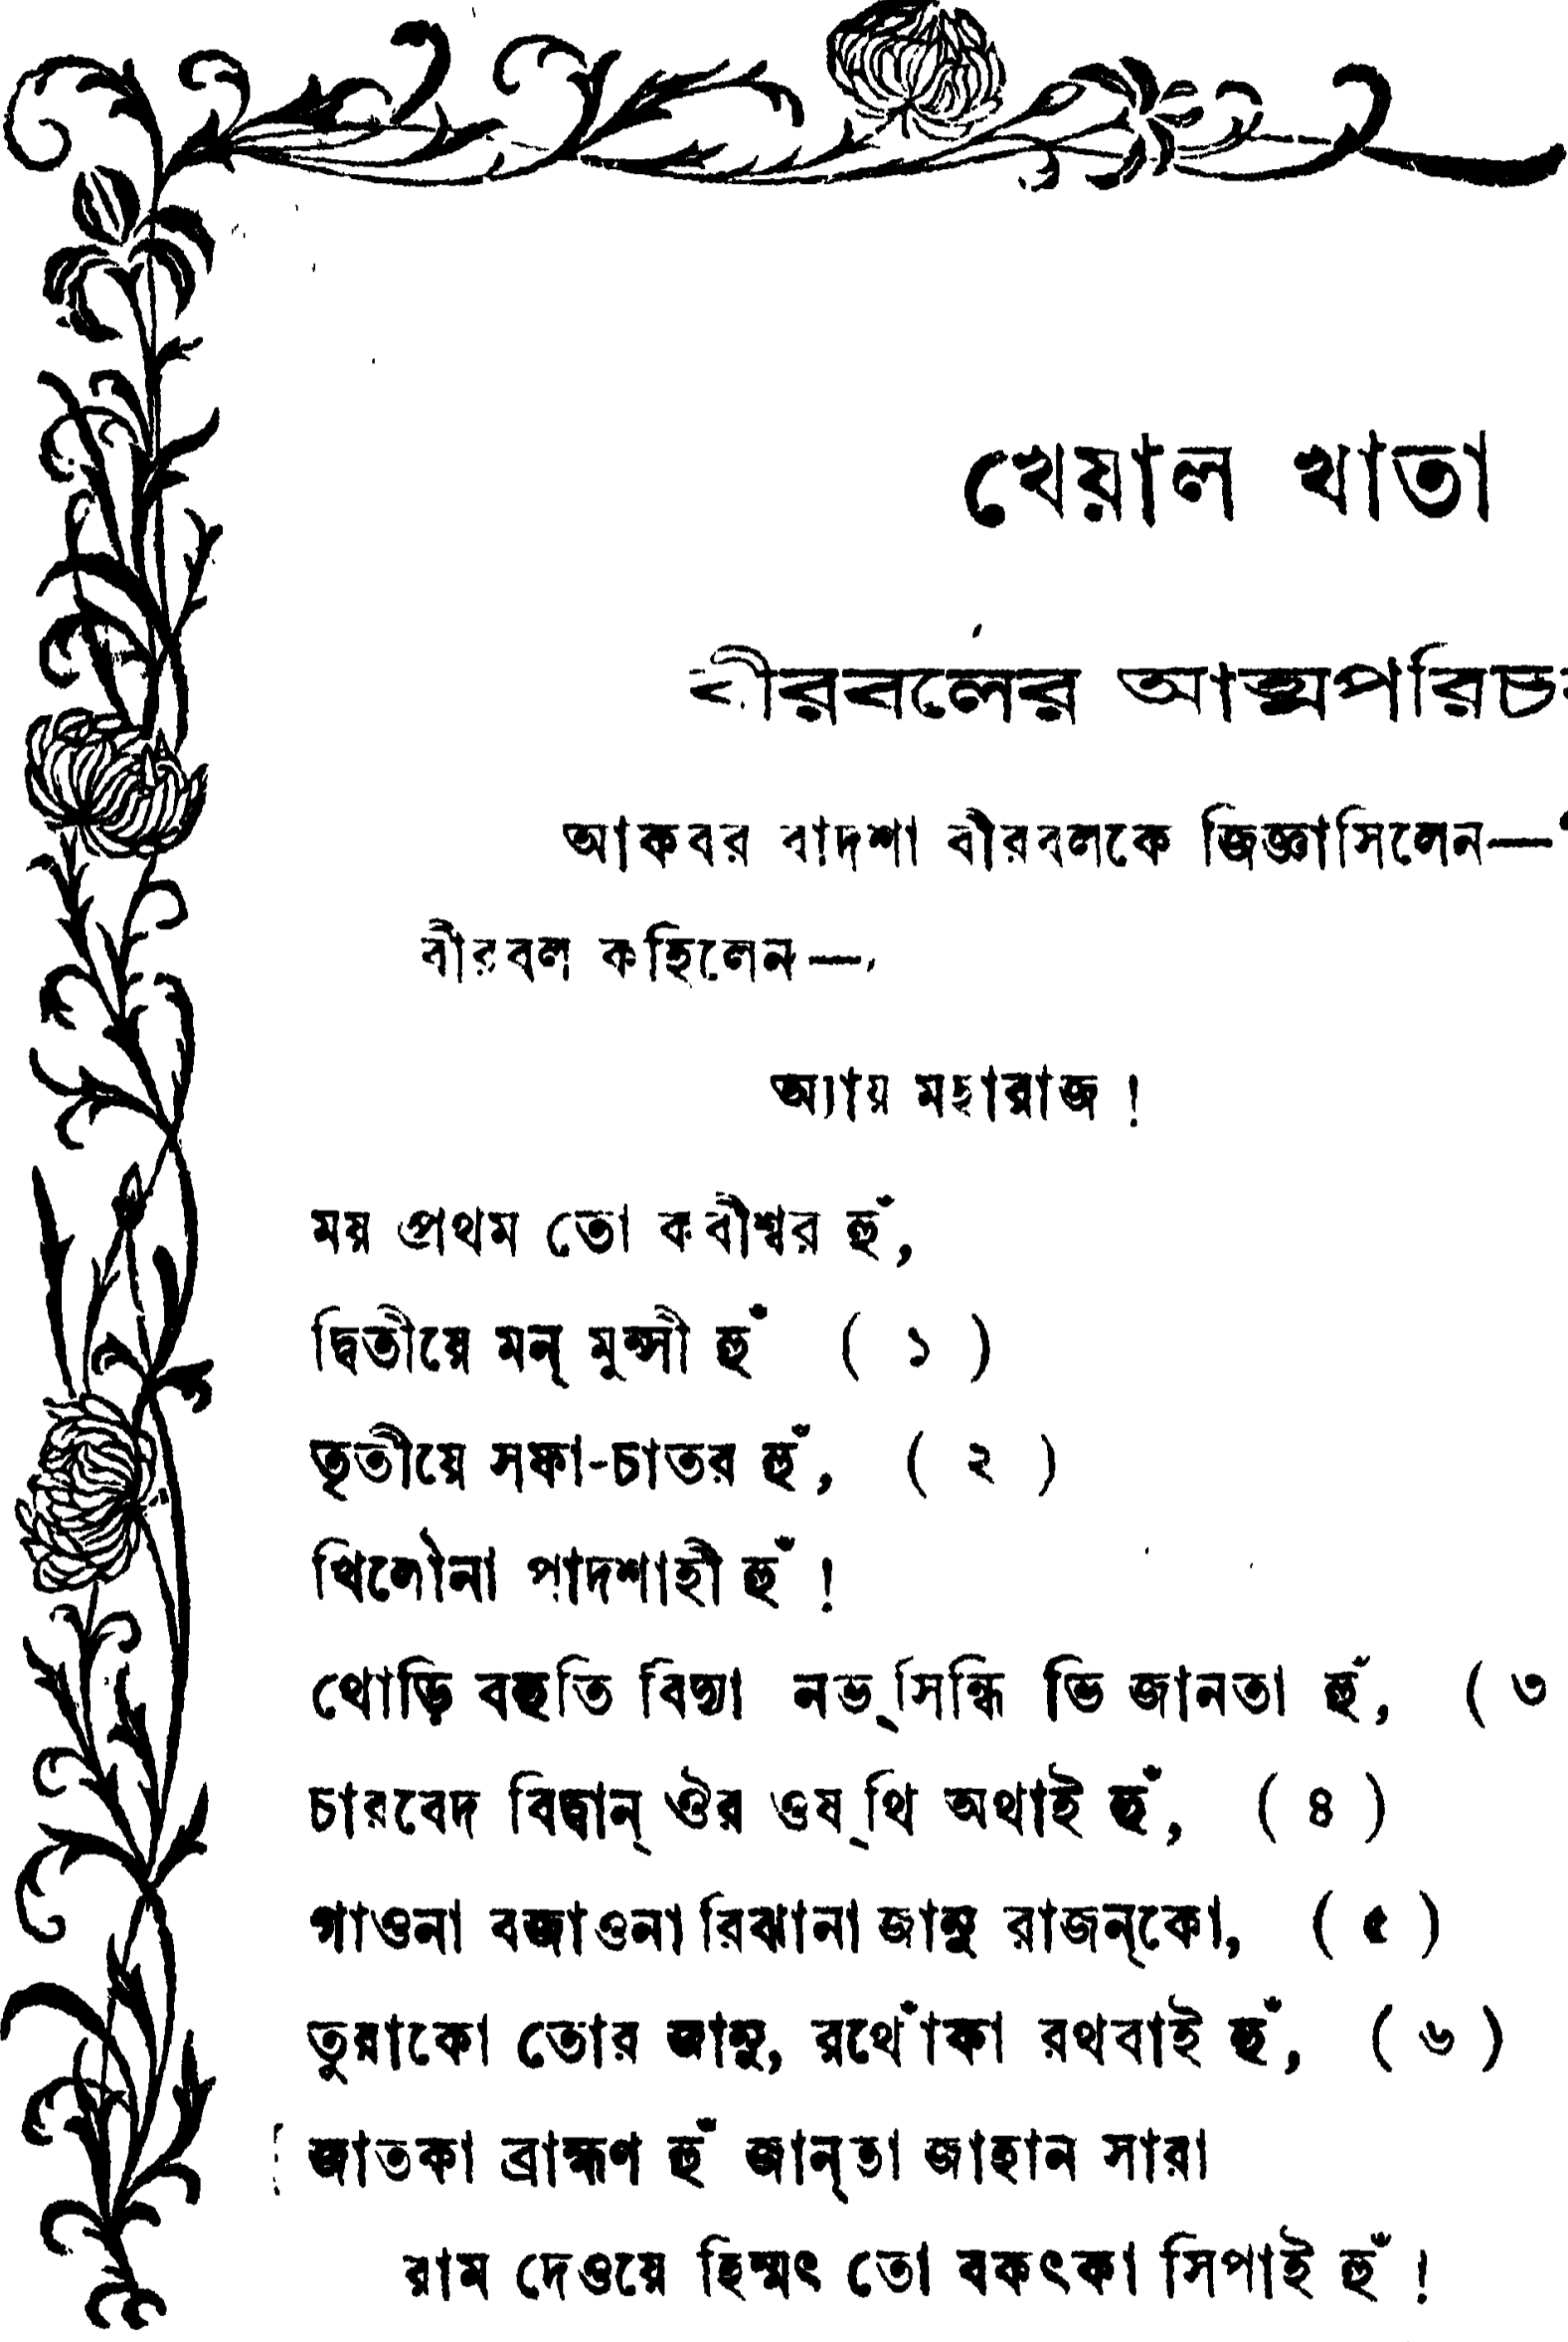 খেয়াল খাতা
বীরবলের আত্মপরিচ
আকবর বাদশা বীরবলকে জিজ্ঞাসিলেন—
বীরবল কহিলেন—
অ্যায় মহারাজ !
ময় প্রথম তো কবীশ্বর হুঁ,
দ্বিতীয়ে মন্ মুন্সী হুঁ ( ১ )
তৃতীয়ে সফা-চাতর হুঁ, ( ২ )
খিলৌনা পাদশাহী হুঁ !
থোড়ি বহুতি বিদ্যা নভ্‌সিন্ধি ভি জানতা হুঁ, ( ৩
চারবেদ বিদ্বান্ ঔর ওষ্‌থি অথাই হুঁ, ( ৪ )
গাওনা বজাওনা রিঝানা জানু রাজন্‌কো, ( ৫ )
তুরাকো তোর জানু, রথোঁকা রথবাই হুঁ, ( ৬ )
জাতকা ব্রাহ্মণ হুঁ জান্‌তা জাহান সারা
রাম দেওয়ে হিম্মৎ তো বকৎকা সিপাই হুঁ !